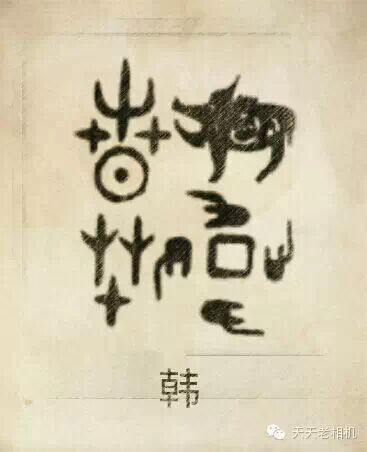 韩
天天老相机